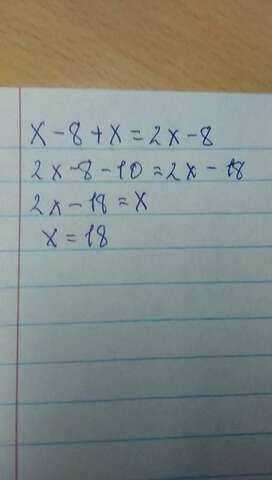 x - 8 + x = 2x - 8
2x - 8 - 10 = 2x - 18
2x - 18 = x
x = 18